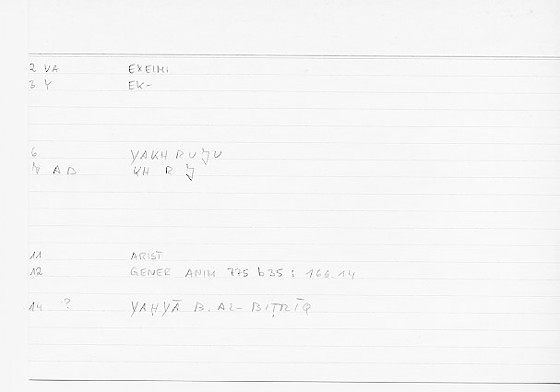 2 VA EXEIMI
3 Y EK-
6 YAKHRUJU
7 AD KH R J
11 ARIST
12 GENER ANIM 775 b 35 : 166.14
14 ? YAḤYĀ B. AL-BIṬRĪQ